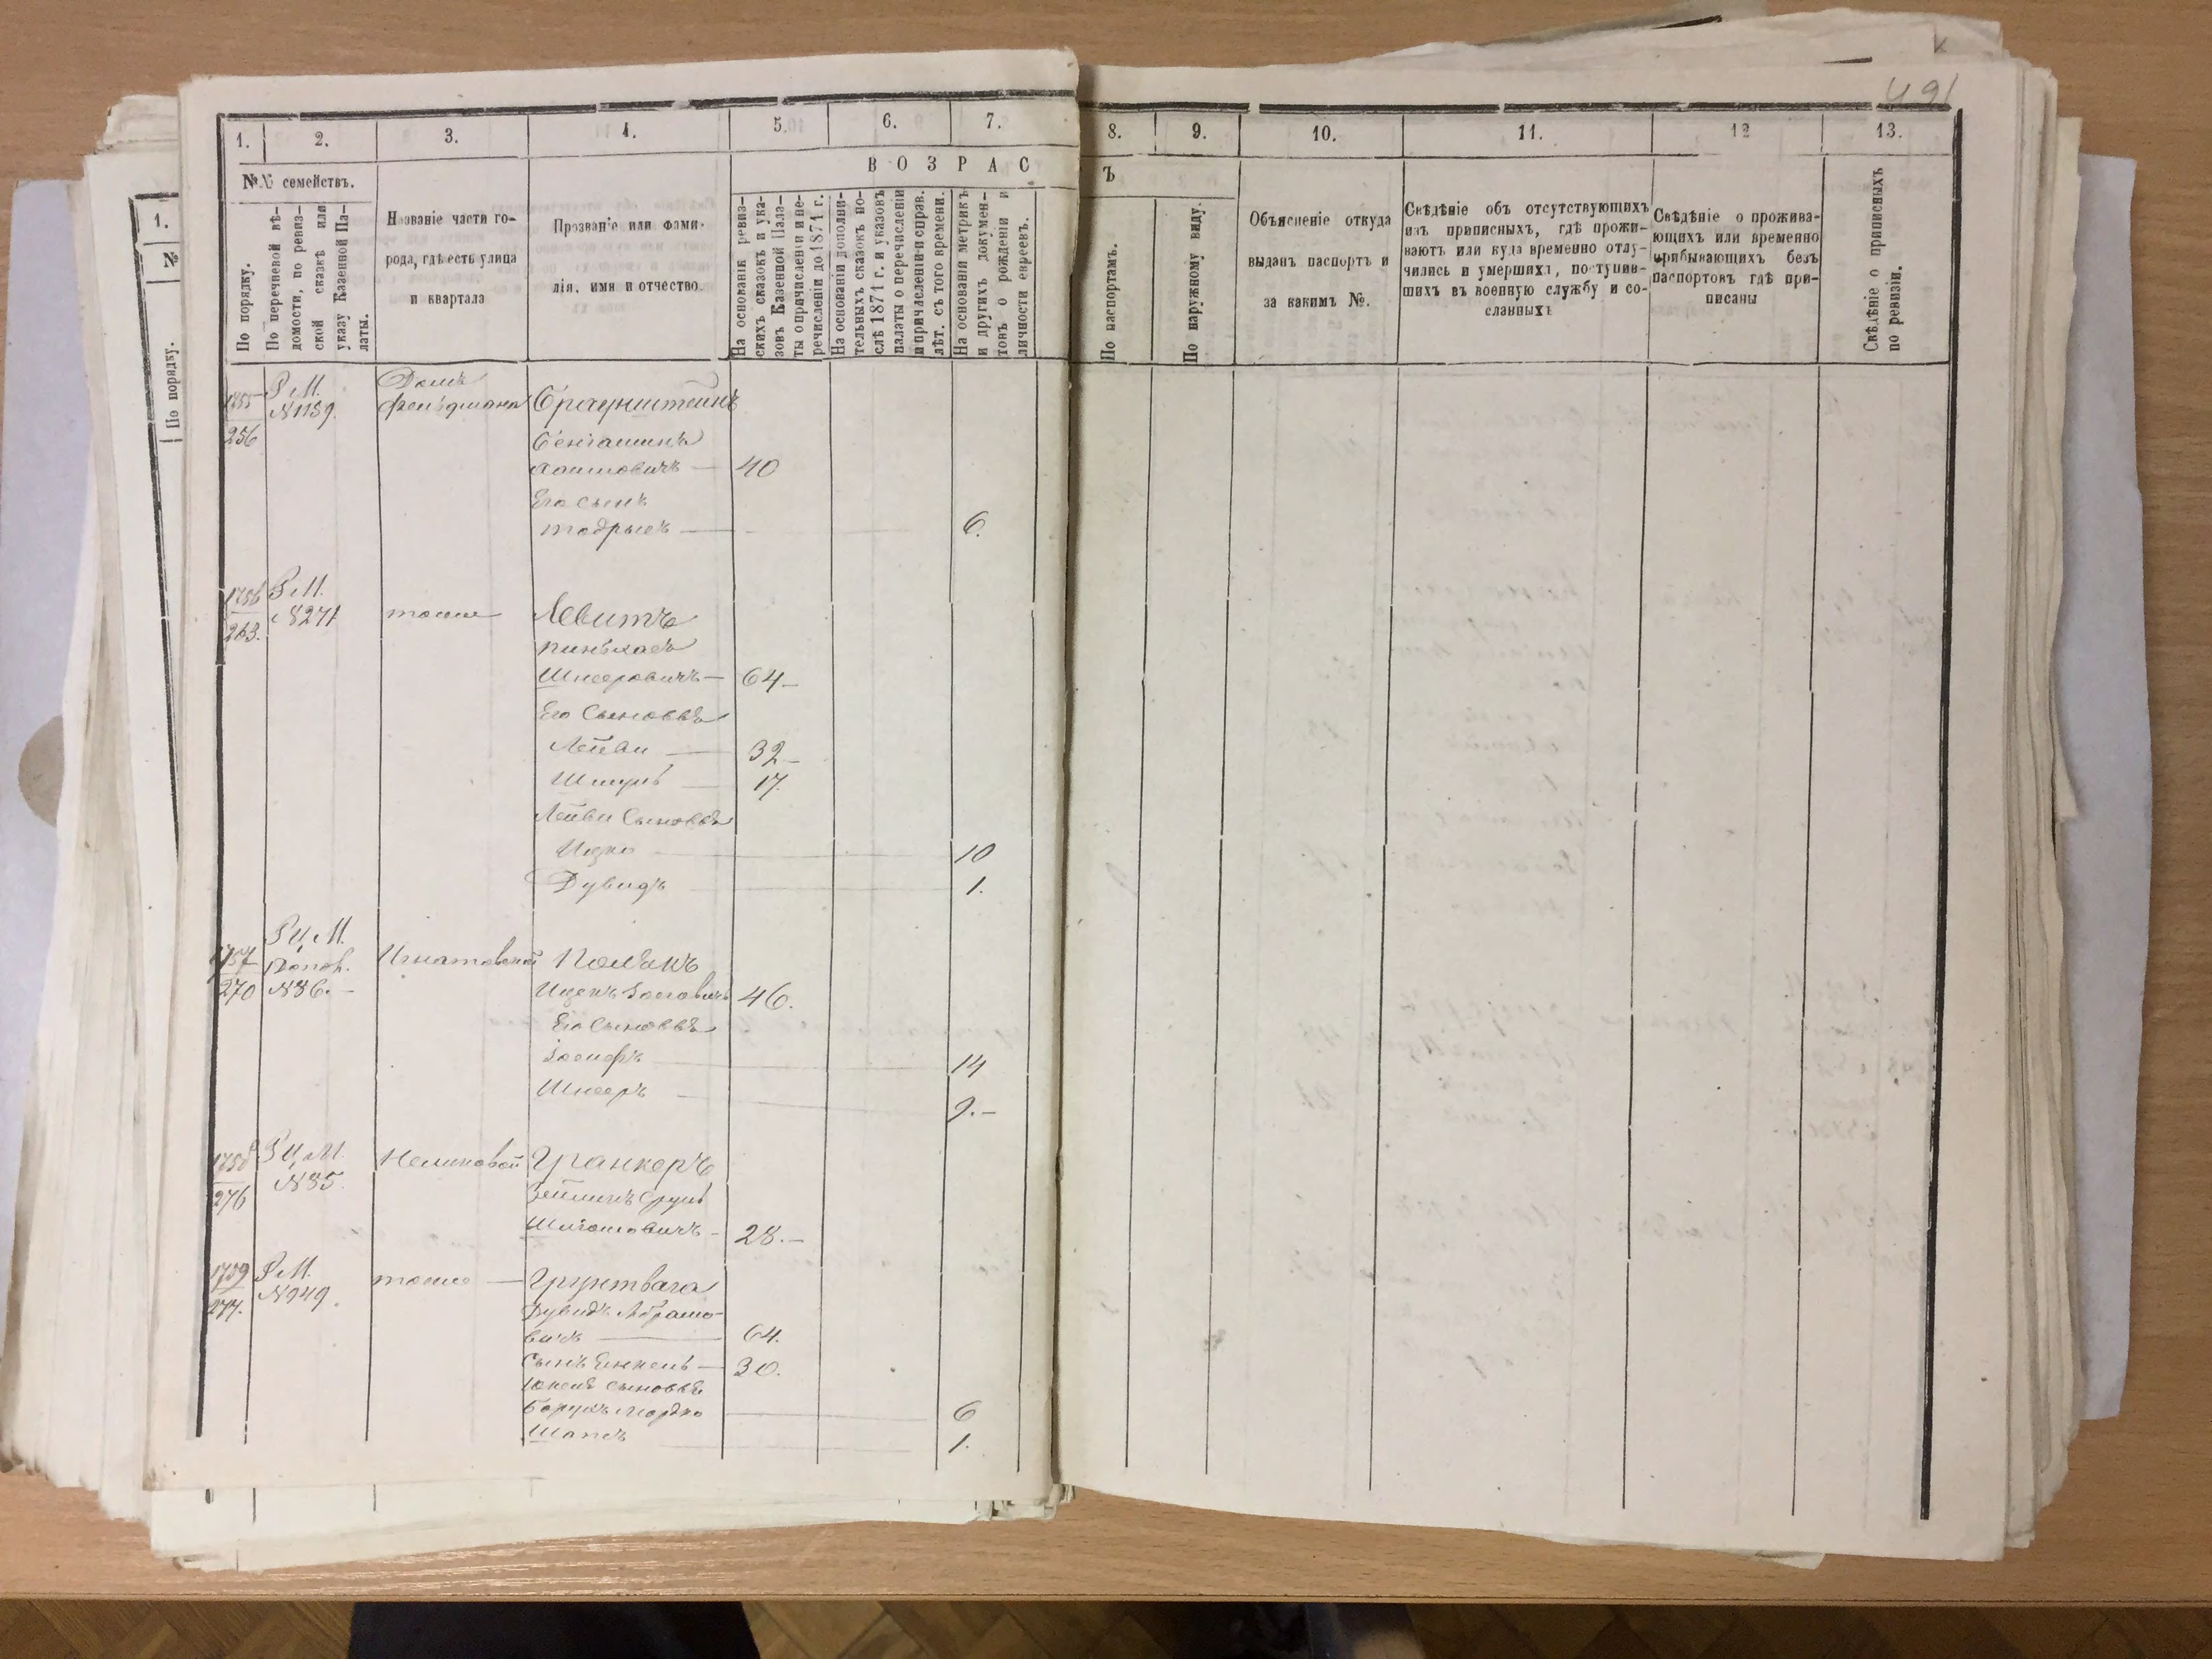 491
1. 2. 3. 4. 5. 6. 7. 8. 9. 10. 11. 12 13.
№№ семействъ.
ВОЗРАС
Ъ
По порядку.
По перечневой вѣ-
домости, по ревиз-
ской сказкѣ или
указу Казенной Па-
латы.
Названіе части го-
рода, гдѣ есть улица
и квартала
Прозваніе или фами-
лія, имя и отчество.
На основаніи ревиз-
скихъ сказокъ и ука-
зовъ Казенной Пала-
ты о причисленіи и пе-
речисленіи до 1871 г.
На основаніи дополни-
тельныхъ сказокъ по-
слѣ 1871 г. и указовъ
палаты о перечисленіи
и причисленіи и справ.
лѣт. съ того времени.
На основаніи метрикъ
и другихъ докумен-
товъ о рожденіи и
личности евреевъ.
По паспортамъ.
По наружному виду.
Объясненіе откуда
выданъ паспортъ и
за какимъ №.
Свѣдѣніе объ отсутствующихъ
изъ приписныхъ, гдѣ прожи-
ваютъ или куда временно отлу-
чились и умершихъ, поступив-
шихъ въ военную службу и со-
сланныхъ
Свѣдѣніе о прожива-
ющихъ или временно
прибывающихъ безъ
паспортовъ гдѣ при-
писаны
Свѣдѣніе о приписныхъ
по ревизіи.
1.
№
По порядку.
1755 Р. М. Домъ
256 №1159. Фельдмана Браунштейнъ
Беніаминъ
Хаимовичъ — 40
Его сынъ
Тодрысъ — 6.
1756 Р. М.
263. №271 тоже Левитъ
Пинхасъ
Шнееровичъ — 64 —
Его Сыновья
Лейви — 32 —
Шмуль — 17.
Лейви Сыновья
Ицко — 10
Дувидъ — 1.
1757 Р. Ц. М.
Допол. Игнатовской Полякъ
270 №36. — Ицекъ Іосіовичъ 46.
Его Сыновья
Іосифъ — 14
Шнееръ — 9. —
1758 Р. Ц. М. Гранкеръ
276 №35.
Зейликъ Сруль
28. —
1759 Р. М. тоже — Грунтвага
277. №949. Дувидъ Абрамо-
вичъ — 64.
Сынъ Янкель — 30.
Янкеля сыновья
Борухъ Мордко — 6
Шапсъ — 1.